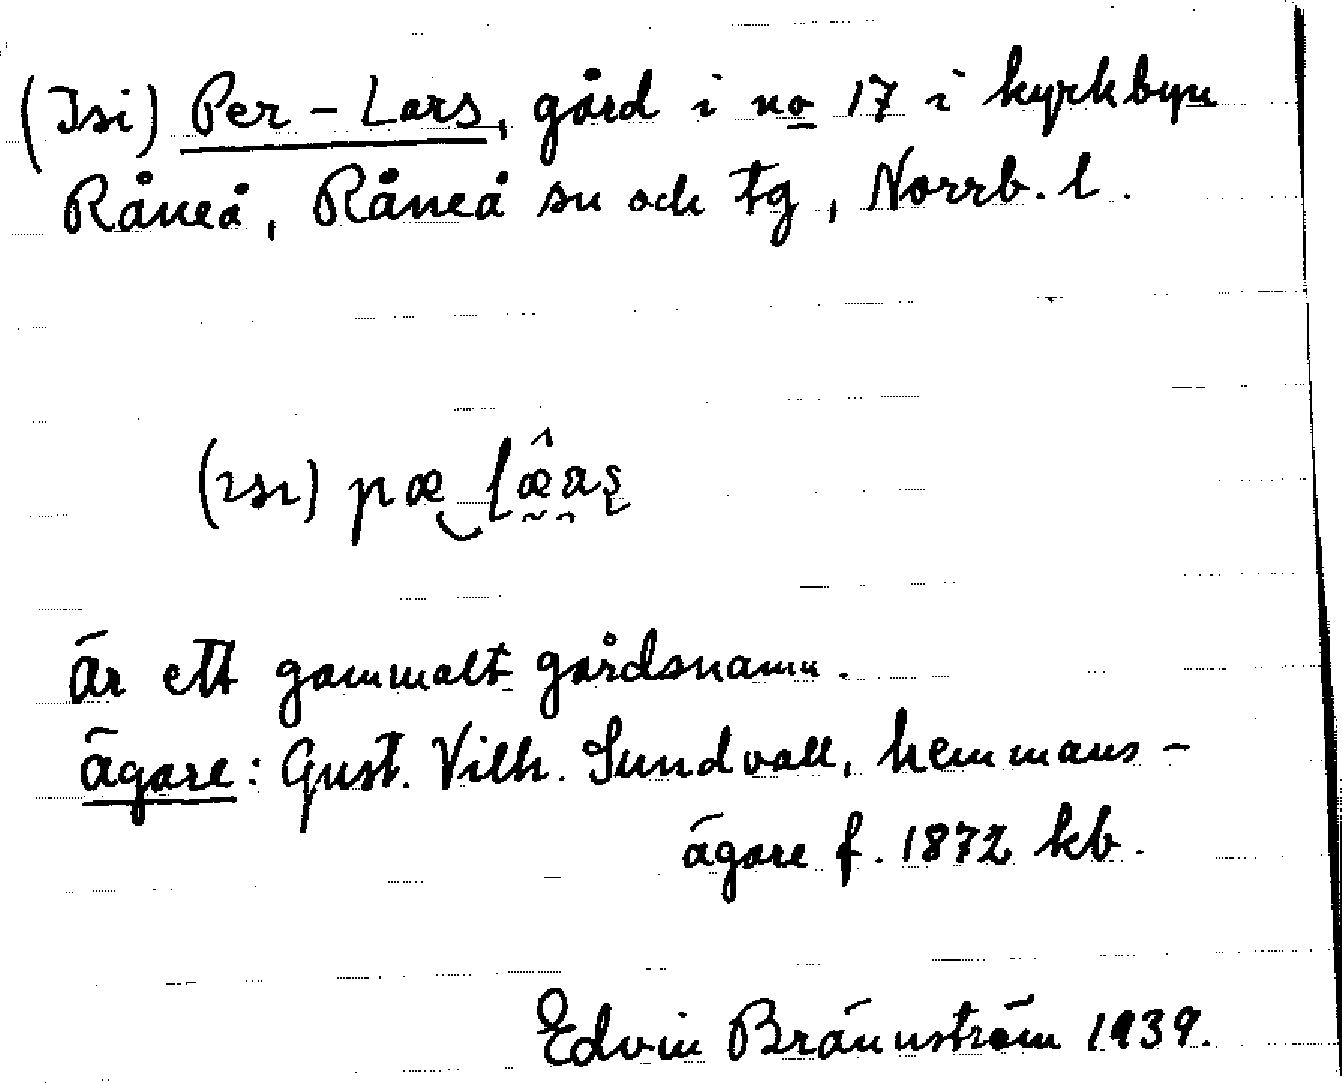 (Isi) Per-Lars, gård i no 17 i kyrkbyn
Råneå, Råneå sn och tg, Norrb. l.
(ısı) pæ‿læ̂as
Är ett gammalt gårdsnamn.
ägare: Gust. Vilh. Sundvall, hemmans-
ägare f. 1872 kb.
Edvin Brännström 1939.